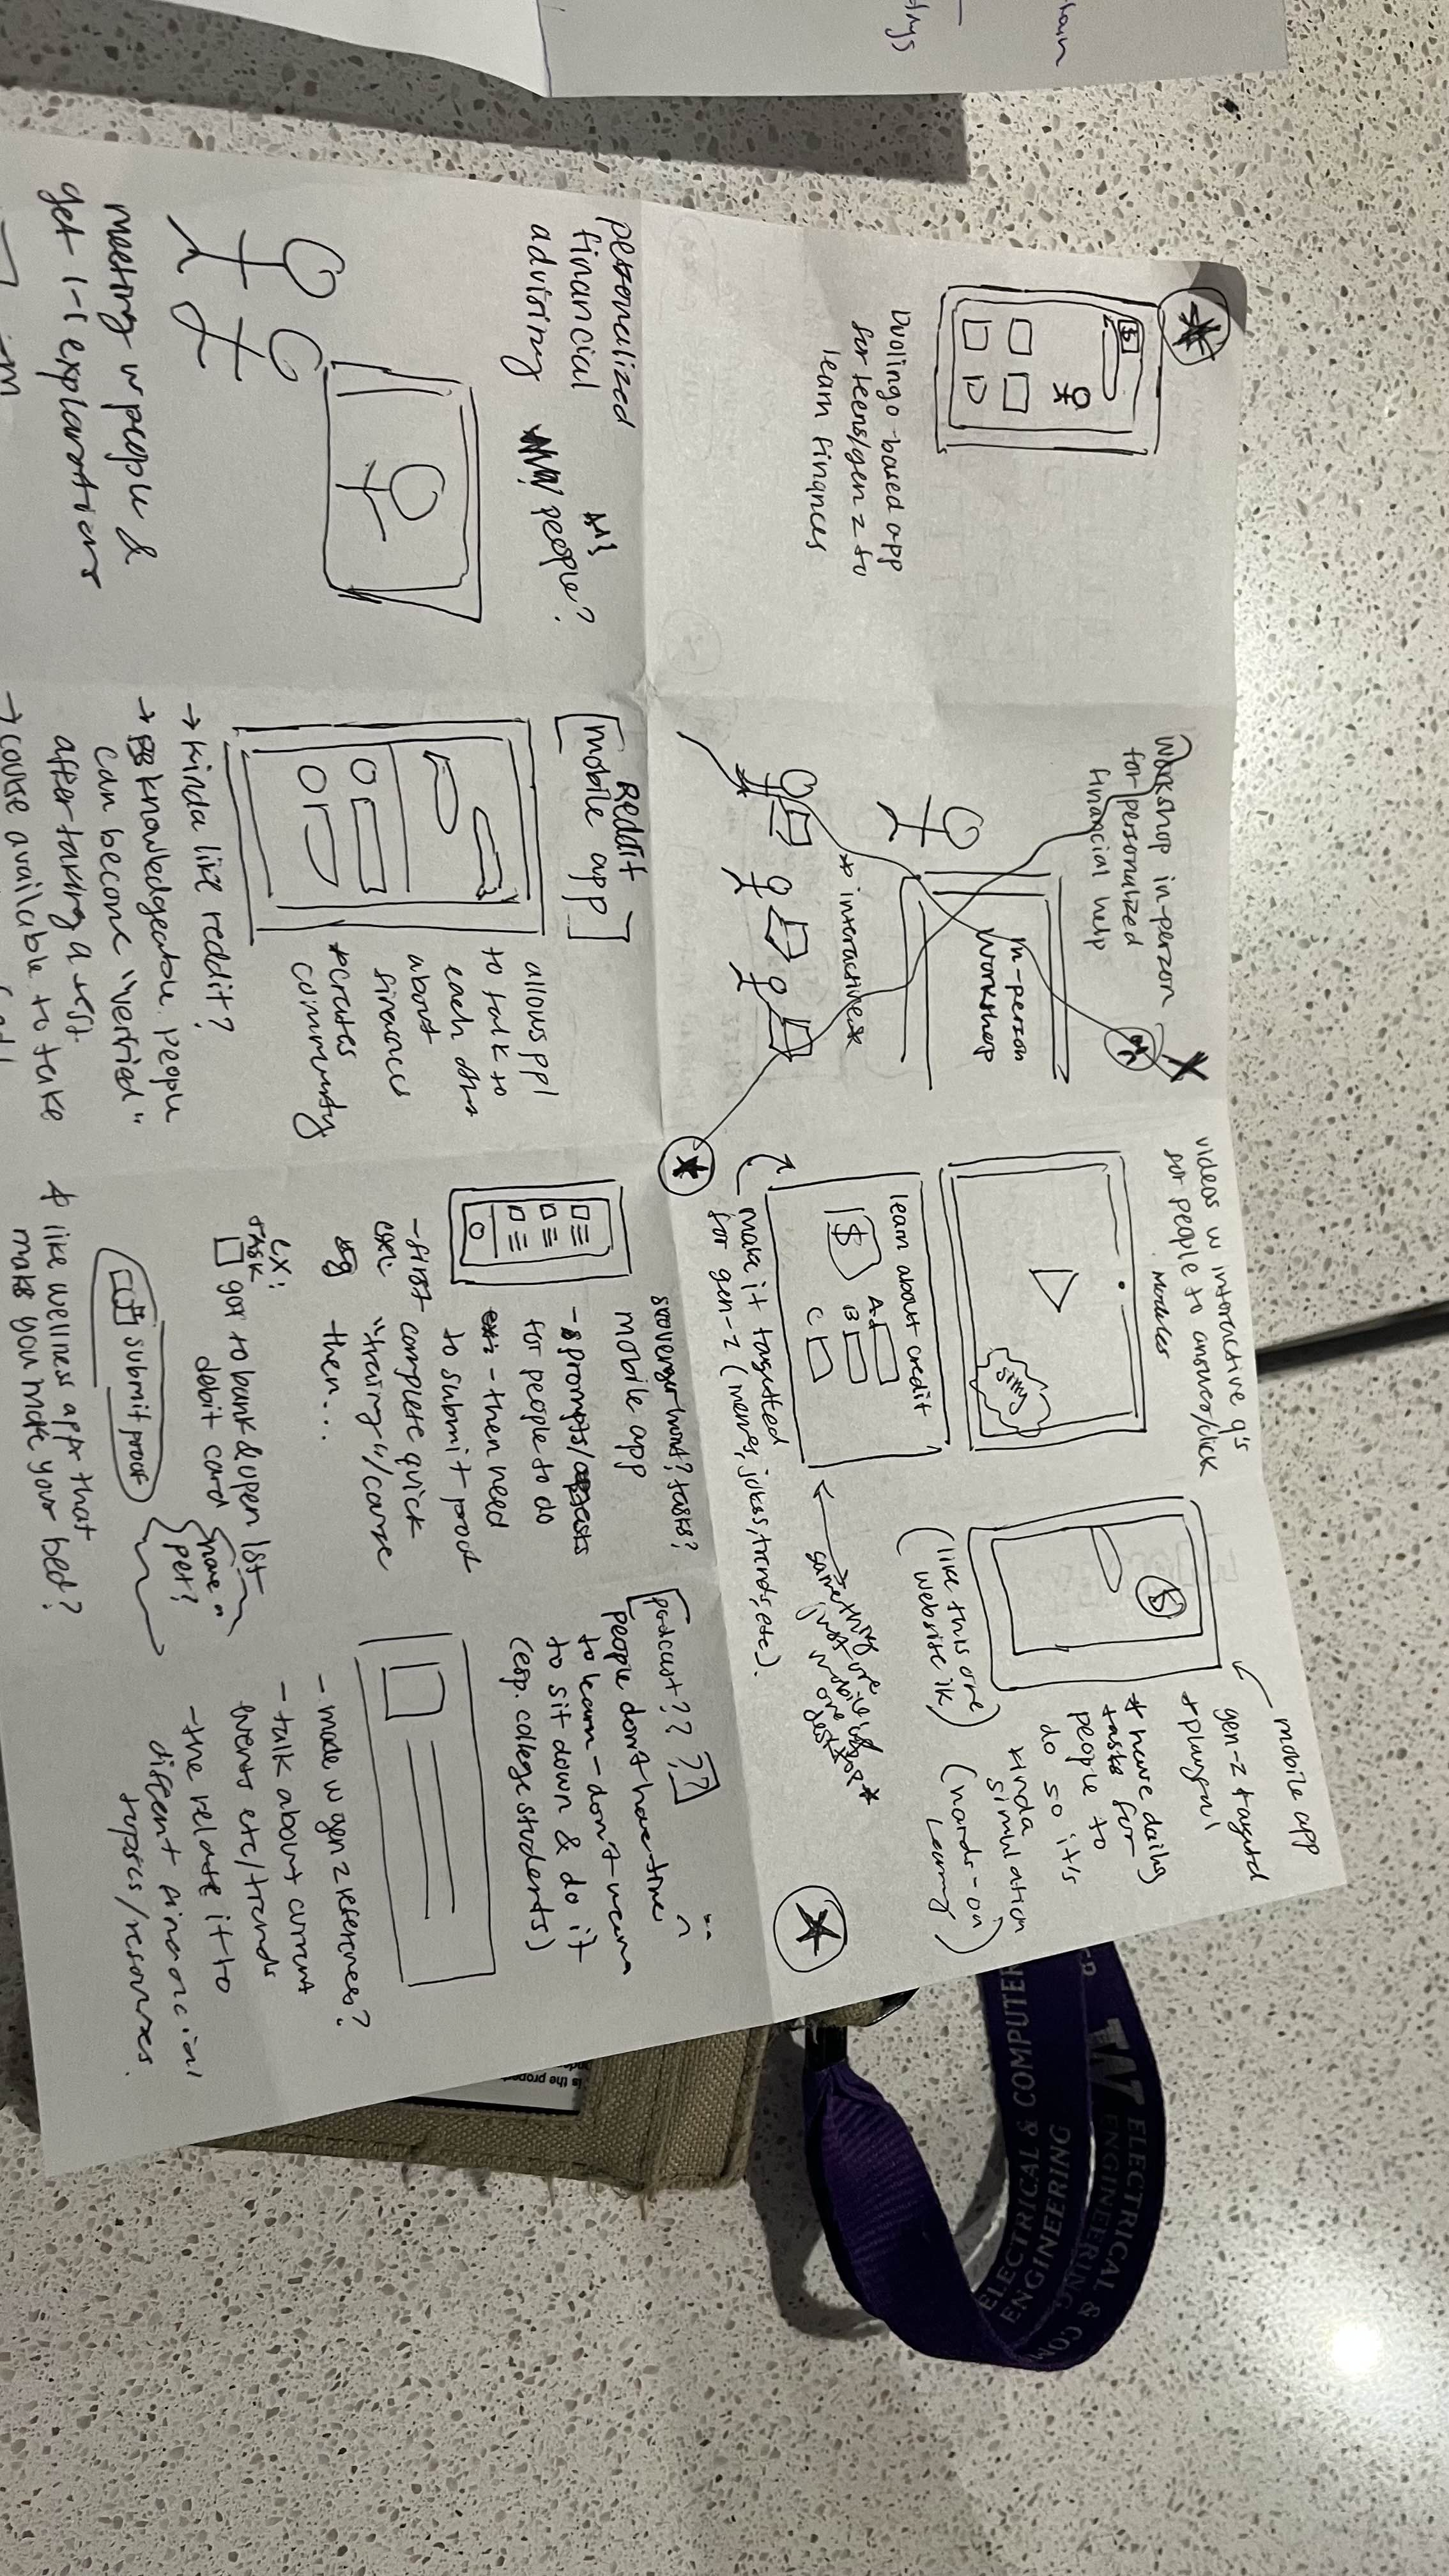 Duolingo-based app
for teens/gen z to
learn finances
$
Workshop in-person
for personalized
financial help
X
in-person
workshop
* interactive*
videos w interactive q's
for people to answer/click
modules
silly
learn about credit
$
A.
B
C
make it targetted
for gen-z (memes, jokes, trends, etc).
mobile app
gen-z targeted
+ playful
* have daily
tasks for
people to
do so it's
kinda
simulation
(hands-on
learning)
$
(like this one
website ik)
personalized
financial
advising
people?
meeting w people &
get 1-1 explanations
Reddit
[mobile app]
allows ppl
to talk to
each other
about
finances
*creates
community
→ kinda like reddit?
→ knowledgeable people
can become "verified"
after taking a test.
→ course available to take
scavenger hunt? tasks?
mobile app
- prompts/
for people to do
- then need
to submit proof
- first complete quick
"training"/course
then...
ex:
task
go to bank & open 1st
debit card
submit proof
have a
pet?
* like wellness apps that
make you make your bed?
podcast?? ??
people don't have time
to learn - don't wanna
to sit down & do it
(esp. college students)
- made w gen z references?
- talk about current
events etc/trends
- the relate it to
different financial
topics/resources.
ELECTRICAL & COMPUTER
ENGINEERING
W ELECTRICAL & COM
ENGINEERING
is the proper